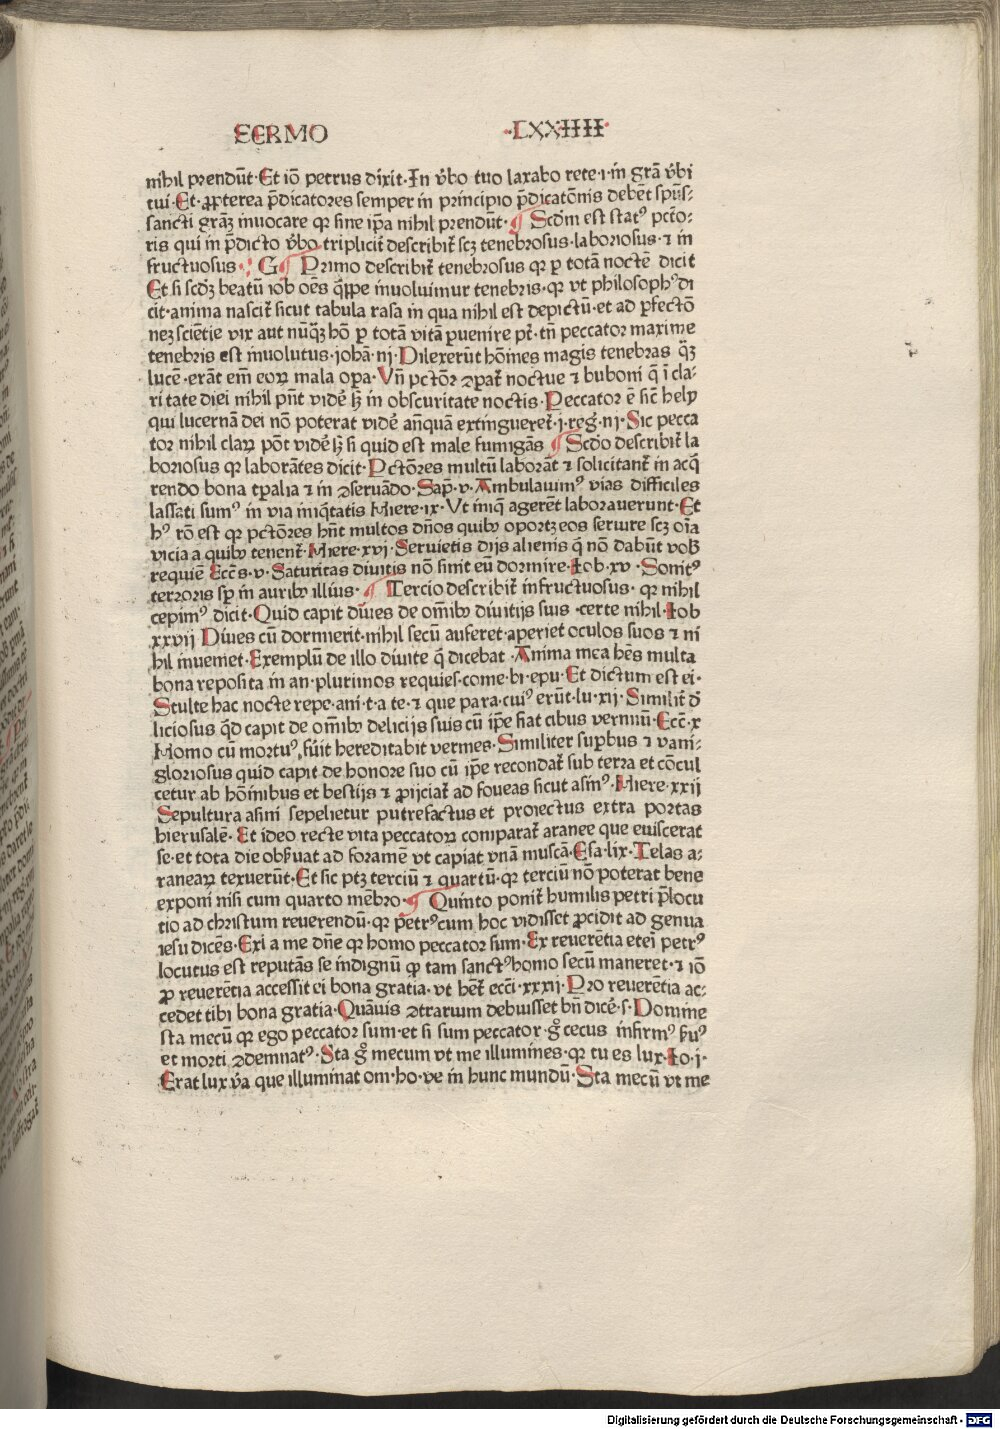 SERMO LXXIIII
nihil prendūt·Et iō petrus dixit·In v̄bo tuo laxabo rete·i·in grā v̄bi
tui·Et·ꝓpterea p̄dicatores semper in principio p̄dicatōnis debēt spūs⸗
sancti grāꝫ inuocare qꝛ sine ip̄a nihil prendūt·¶ Scdm est statꝰ pctō⸗
ris qui in p̄dicto v̄bo triplicit̄ describit̄ scꝫ tenebrosus·laboriosus·⁊ in
fructuosus·: G¶ Primo describit̄ tenebrosus qꝛ p totā noctē dicit
Et si scdꝫ beatū iob oēs q̄ippe inuoluimur tenebris·qꝛ vt philosophꝰdi
cit·anima nascit̄ sicut tabula rasa in qua nihil est depictū·et ad pfectō
neꝫ sciētie vix aut nūq̄ꝫ hō p totā vitā puenire pt̄·tn̄ peccator maxime
tenebris est inuolutus·johā·iij·Dilexerūt hōines magis tenebras q̄ꝫ
lucē·erāt em̄ eoꝝ mala oꝑa·Vn̄ pctōr ꝯpat̄ noctue ⁊ buboni q̄ i cla⸗
ritate diei nihil pn̄t vidē lꝫ in obscuritate noctis·Peccator ē sic̄ hely
qui lucernā dei nō poterat vidē anq̄uam extingueret̄·j·reḡ·iij·Sic pecca
tor nihil claꝝ pōt vidē lꝫ si quid est male fumigās ¶ Scdo describit̄ la
boriosus qꝛ laborātes dicit·Pctōres multū laborāt ⁊ solicitant̄ in acq̄
rendo bona tp̄alia ⁊ in ꝯseruādo·Sap̄·v·Ambulauimꝰ vias difficiles
lassati sumꝰ in via iniq̄tatis Hiere·ix·Vt iniq̄ agerēt laborauerunt·Et
hꝰ rō est qꝛ pctōres hn̄t multos dn̄os quibꝰ oportꝫ eos seruire scꝫ oīa
vicia a quibꝰ tenent̄·Hiere·xvj·Seruietis dijs alienis q̄ nō dabūt vob̄
requiē Ecc̄s·v·Saturitas diuitis nō sinit eū dormire·Iob·xv·Sonitꝰ
terroris sp̄ in auribꝰ illius·¶ Tercio describit̄ infructuosus·qꝛ nihil
cepimꝰ dicit·Quid capit diues de om̄ibꝰ diuitijs suis·certe nihil·Iob
xxvij Diues cū dormierit·nihil secū auferet·aperiet oculos suos ⁊ ni
hil inueniet·Exemplū de illo diuite q̄ dicebat·Anima mea hēs multa
bona reposita in an·plurimos requies·come·bi·epu·Et dictum est ei·
Stulte hac nocte repe·ani·t·a te·⁊ que para·cuiꝰ erūt·lu·xij·Similit̄ d̄
liciosus q̄d capit de om̄ibꝰ delicijs suis cū ip̄e fiat cibus vermiū·Ecc̄·x
Homo cū mortuꝰ fūit hereditabit vermes·Similiter supbus ⁊ vani⸗
gloriosus quid capit de honore suo cū ip̄e recondat̄ sub terra et cōcul
cetur ab hōinibus et bestijs ⁊ ꝓijciat̄ ad foueas sicut asinꝰ·Hiere·xxij
Sepultura asini sepelietur putrefactus et proiectus extra portas
hierusalē·Et ideo recte vita peccatoꝝ comparat̄ aranee que euiscerat
se·et tota die obs̄uat ad foramē vt capiat vnā muscā·Esa·lix·Telas a⸗
raneaꝝ texuerūt·Et sic ptꝫ terciū ⁊ quartū·qꝛ terciū nō poterat bene
exponi nisi cum quarto mēbro·¶ Quinto ponit̄ humilis petri p̄locu
tio ad christum reuerendū·qꝛ petrꝰcum hoc vidisset ꝓcidit ad genua
iesu dicēs·Exi a me dn̄e qꝛ homo peccator sum·Ex reuerētia etei̇ petrꝰ
locutus est reputās se indignū ꝙ tam sanctꝰhomo secū maneret·⁊ iō
ꝓ reuerētia accessit ei bona gratia·vt het̄ ecci·xxxij·Pro reuerētia ac⸗
cedet tibi bona gratia·Quāuis ꝯtrarium debuisset bn̄ dicē·s·Domine
sta mecū qꝛ ego peccator sum·et si sum peccator·g̊ cecus infirmꝰ s̄uꝰ
et morti ꝯdemnatꝰ·Sta g̊ mecum vt me illumines·qꝛ tu es lux·Io·j·
Erat lux v̄a que illuminat om·ho·ve in hunc mundū·Sta mecū vt me
Digitalisierung gefördert durch die Deutsche Forschungsgemeinschaft - DFG